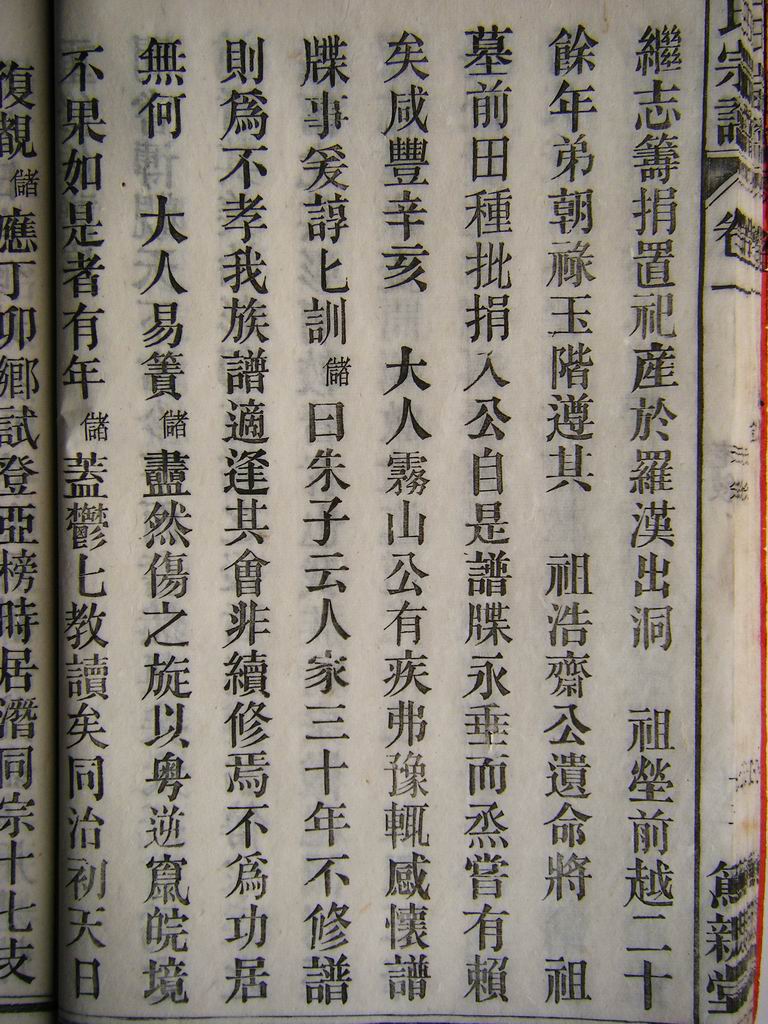 宗譜 卷一 篤親堂
繼志籌捐置祀産於羅漢出洞 祖塋前越二十
餘年弟朝祿玉階遵其 祖浩齋公遺命將 祖
墓前田種批捐入公自是譜牒永垂而烝嘗有賴
矣咸豐辛亥 大人霧山公有疾弗豫輒感懷譜
牒事爰諄匕訓儲曰朱子云人家三十年不修譜
則爲不孝我族譜適逢其會非續修焉不爲功居
無何 大人易簀儲盡然傷之旋以粤逆竄皖境
不果如是者有年儲蓋鬱匕教讀矣同治初天日
復覩儲應丁卯鄉試登亞榜時居潛同宗十七支